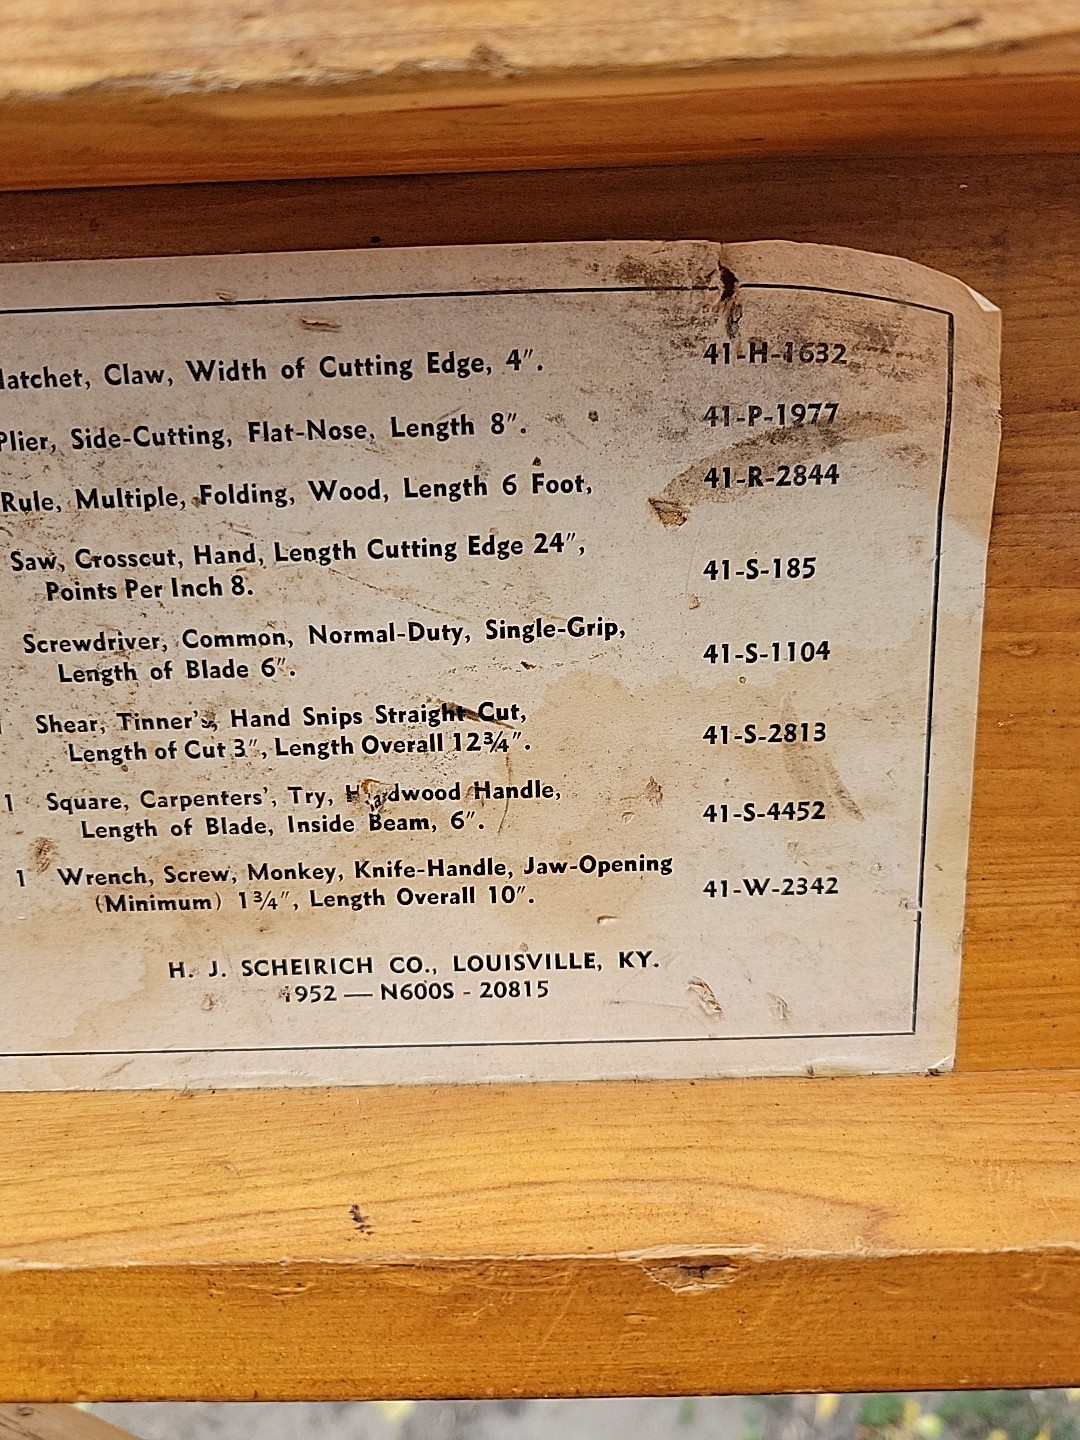 Hatchet, Claw, Width of Cutting Edge, 4″. 41-H-1632
Plier, Side-Cutting, Flat-Nose, Length 8″. 41-P-1977
Rule, Multiple, Folding, Wood, Length 6 Foot, 41-R-2844
Saw, Crosscut, Hand, Length Cutting Edge 24″,
Points Per Inch 8. 41-S-185
Screwdriver, Common, Normal-Duty, Single-Grip,
Length of Blade 6″. 41-S-1104
Shear, Tinner's, Hand Snips Straight Cut,
Length of Cut 3″, Length Overall 12¾″. 41-S-2813
1 Square, Carpenters', Try, Hardwood Handle,
Length of Blade, Inside Beam, 6″. 41-S-4452
1 Wrench, Screw, Monkey, Knife-Handle, Jaw-Opening
(Minimum) 1¾″, Length Overall 10″. 41-W-2342
H. J. SCHEIRICH CO., LOUISVILLE, KY.
1952 — N600S - 20815